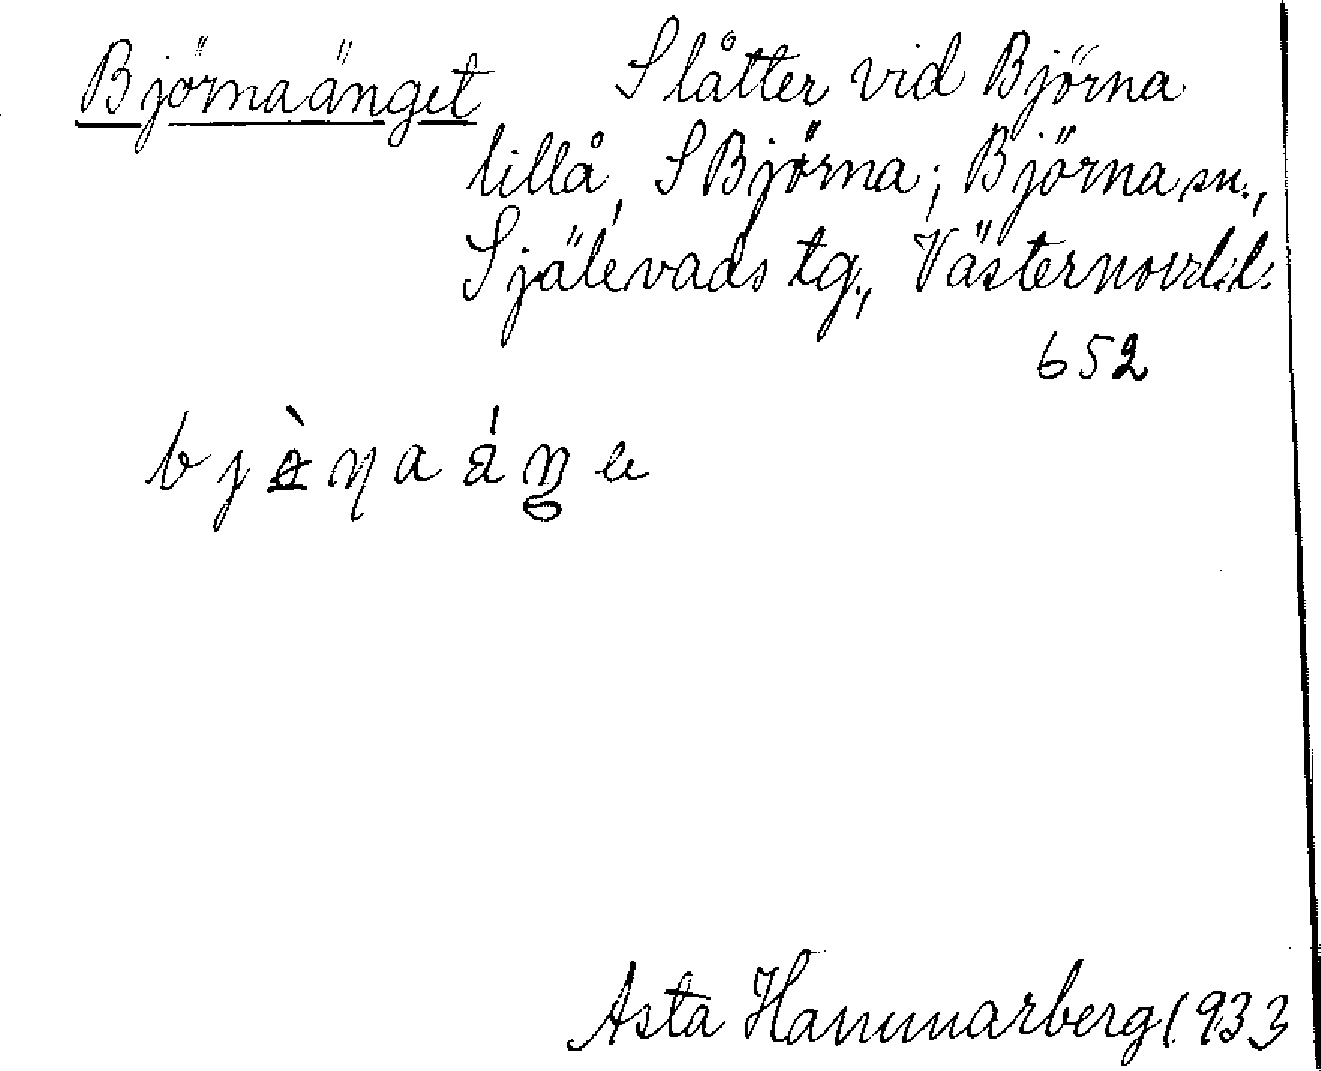 Björnaänget Slåtter vid Björna
lillå, S Björna; Björna sn.,
Själevads tg., Västernorrl:l:
652
Asta Hammarberg 1933